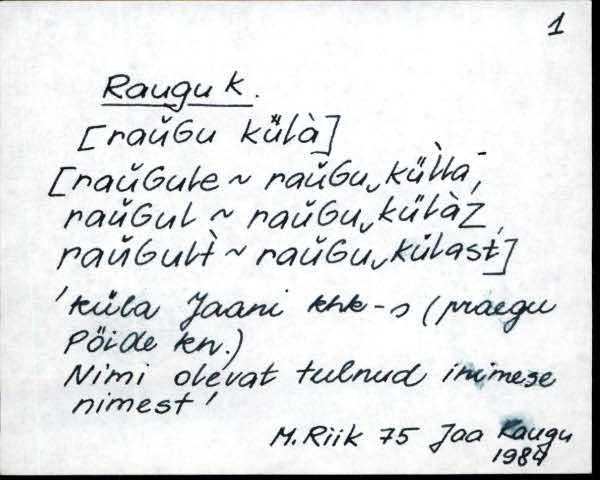 1
Raugu k.
[rau̯Gu külà]
[rau̯Gule ~ rau̯Gu‿kül̀lā,
rau̯Gul ~ rau̯Gu‿külàZ,
rau̯Gult̀ ~ rau̯Gu‿külast]
'küla Jaani khk-s (praegu
Pöide kn.)
Nimi olevat tulnud inimese
nimest'
M. Riik 75 Jaa Raugu
1984